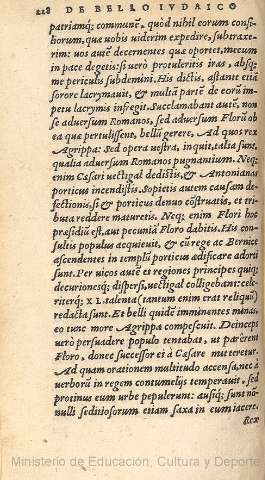 228 DE BELLO IVDAICO
patriamq́; communẽ, quòd nihil eorum consi-
liorum, quæ uobis uiderim expedire, subtraxe-
rim: uos autẽ decernentes quæ oportet, mecum
in pace degetis: si uerò protuleritis iras, absq́;
me periculis subdemini. His dictis, astante etiã
sorore lacrymauit, & multã partẽ de eorũ im-
petu lacrymis infregit. Succlamabant autẽ, non
se aduersum Romanos, sed aduersum Florũ ob
ea quæ pertulissent, bellũ gerere. Ad quos rex
Agrippa: Sed opera uestra, inquit, talia sunt,
qualia aduersum Romanos pugnantium. Neq́;
enim Cæsari uectigal dedistis, & Antonianas
porticus incendistis. Sopietis autem causam de-
fectionis, si & porticus denuò cõstruatis, et tri-
buta reddere maturetis. Neq́; enim Flori hoc
præsidiũ est, aut pecuniã Floro dabitis. His con-
sultis populus acquieuit, & cũ rege ac Bernice
ascendentes in templũ porticus ædificare adorti
sunt. Per uicos autẽ et regiones principes quiq́;
decurionesq́; dispersi, uectigal colligebant: cele-
riterq́; XL. talenta (tantum enim erat reliquũ)
redacta sunt. Et belli quidẽ imminentes minas,
eo tunc more Agrippa compescuit. Deinceps
uerò persuadere populo tentabat, ut parerent
Floro, donec successor ei à Cæsare mitteretur.
Ad quam orationem multitudo accensa, nec à
uerborũ in regem contumelijs temperauit, sed
protinus eum urbe pepulerunt: ausiq́; sunt nõ-
nulli seditiosorum etiam saxa in eum iacere.
Rex
Ministerio de Educación, Cultura y Deporte